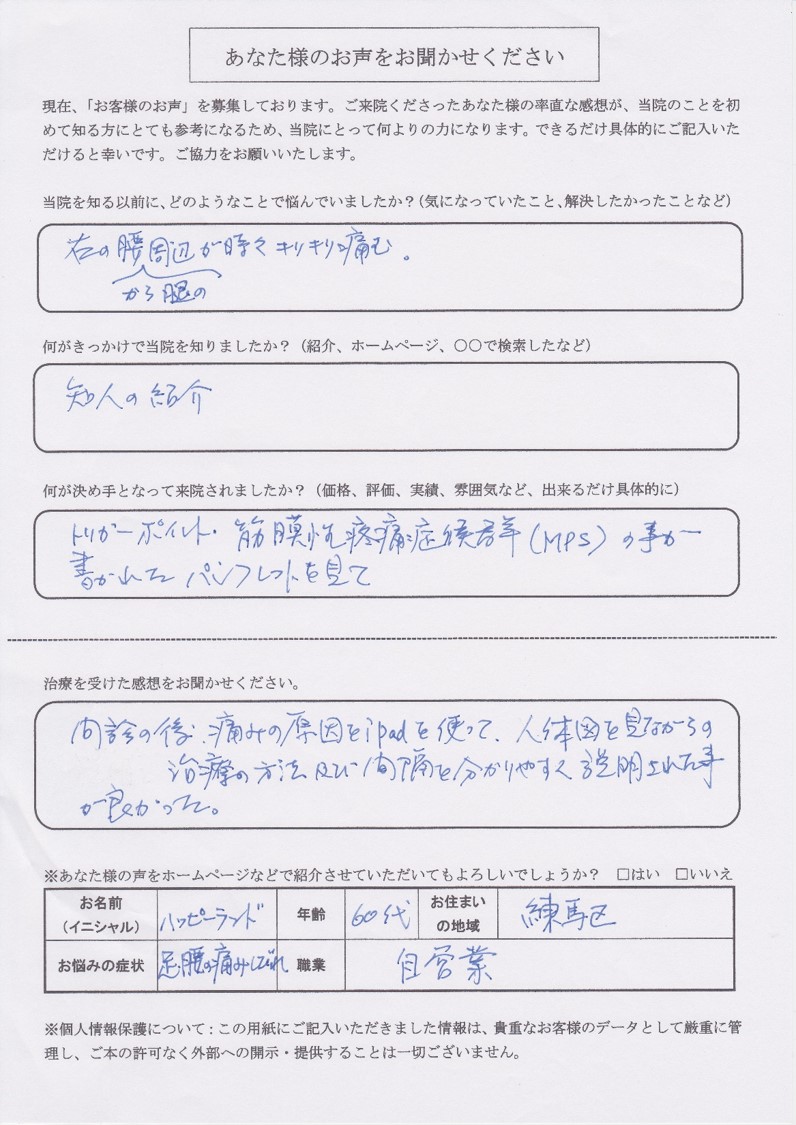 あなた様のお声をお聞かせください
現在、「お客様のお声」を募集しております。ご来院くださったあなた様の率直な感想が、当院のことを初
めて知る方にとても参考になるため、当院にとって何よりの力になります。できるだけ具体的にご記入いた
だけると幸いです。ご協力をお願いいたします。
当院を知る以前に、どのようなことで悩んでいましたか？(気になっていたこと、解決したかったことなど)
右の腰周辺が時々キリキリ痛む。
から腿の
何がきっかけで当院を知りましたか？（紹介、ホームページ、〇〇で検索したなど）
知人の紹介
何が決め手となって来院されましたか？（価格、評価、実績、雰囲気など、出来るだけ具体的に）
トリガーポイント・筋膜性疼痛症候群(MPS)の事が
書かれたパンフレットを見て
治療を受けた感想をお聞かせください。
問診の後、痛みの原因をipadを使って、人体図を見ながらの
治療の方法及び間隔を分かりやすく説明された事
が良かった。
※あなた様の声をホームページなどで紹介させていただいてもよろしいでしょうか？　□はい　□いいえ
お名前（イニシャル） ハッピーランド 年齢 60代 お住まいの地域 練馬区
お悩みの症状 足、腰の痛み、しびれ 職業 自営業
※個人情報保護について：この用紙にご記入いただきました情報は、貴重なお客様のデータとして厳重に管
理し、ご本の許可なく外部への開示・提供することは一切ございません。